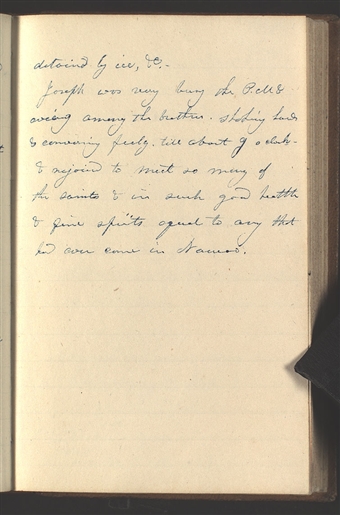 detained by ice, &c.-
Joseph was very busy the P.M &
evening among the brethren. shaking hands
& conversing freely. till about 9 o clock-
& rejoiced to meet so many of
the saints & in such good health
& fine spirits equal to any that
had ever come in Nauvoo.